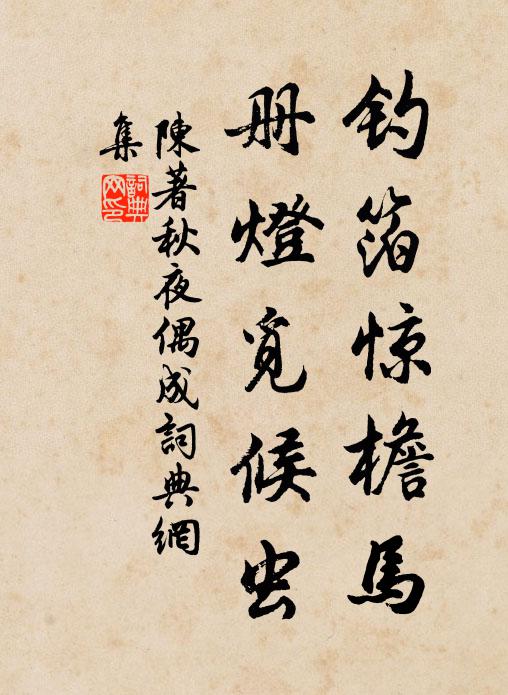 钓箔惊檐馬
册燈覓候虫
陳著秋夜偶成詞典網
集
詞典
网印